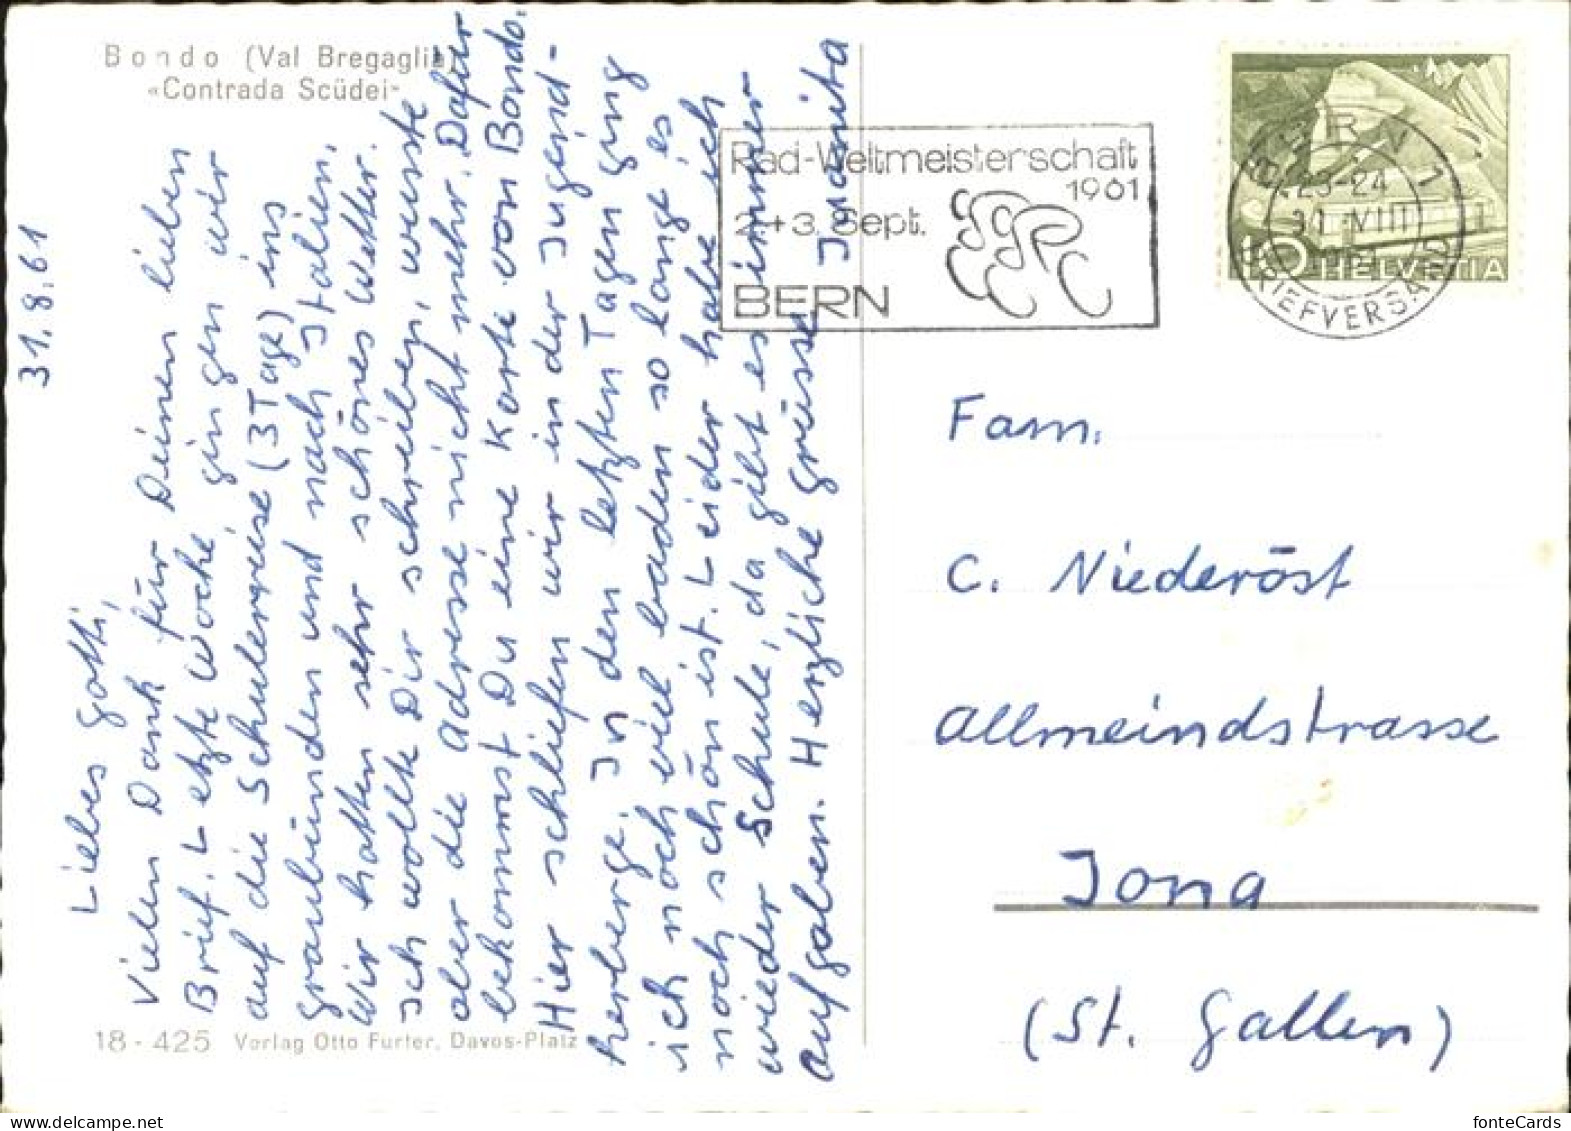 Bondo (Val Bregaglia)
«Contrada Scüdei»
31.8.61
Liebes Gotti,
Vielen Dank für Deinen lieben
Brief. Letzte Woche, gingen wir
auf die Schulerreise (3 Tage) ins
Graubünden und nach Italien.
Wir hatten sehr schönes Wetter.
Ich wollte Dir schreiben, wusste
aber die Adresse nicht mehr. Dafür
bekommst Du eine Karte von Bondo.
Hier schliefen wir in der Jugend-
herberge. In den letzten Tagen ging
ich noch viel baden so lange es
noch schön ist. Leider habe ich
wieder Schule, da gibt es immer
Aufgaben. Herzliche Grüsse Juanita
18 - 425 Verlag Otto Furter, Davos-Platz
Rad-Weltmeisterschaft
1961
2+3. Sept.
BERN
BERN 1
23-24
VIII
BRIEFVERSAND
10 HELVETIA
Fam.
C. Niederöst
Allmeindstrasse
Jona
(St. Gallen)
fonteCards